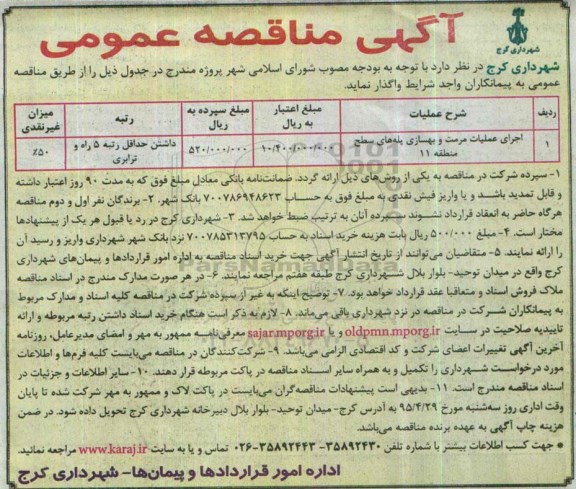 آگهی مناقصه عمومی
شهرداری کرج
شهرداری کرج در نظر دارد با توجه به بودجه مصوب شورای اسلامی شهر پروژه مندرج در جدول ذیل را از طریق مناقصه
عمومی به پیمانکاران واجد شرایط واگذار نماید.
ردیف شرح عملیات مبلغ اعتبار به ریال مبلغ سپرده به ریال رتبه میزان غیرنقدی
۱ اجرای عملیات مرمت و بهسازی پله‌های سطح منطقه ۱۱ ۱۰/۴۰۰/۰۰۰/۰۰۰ ۵۲۰/۰۰۰/۰۰۰ داشتن حداقل رتبه ۵ راه و ترابری ۵۰٪
۱- سپرده شرکت در مناقصه به یکی از روش‌های ذیل ارائه گردد. ضمانت‌نامه بانکی معادل مبلغ فوق که به مدت ۹۰ روز اعتبار داشته
و قابل تمدید باشد و یا واریز فیش نقدی به مبلغ فوق به حساب ۷۰۰۷۸۶۹۴۸۶۲۳ بانک شهر. ۲- برندگان نفر اول و دوم مناقصه
هرگاه حاضر به انعقاد قرارداد نشوند سپرده آنان به ترتیب ضبط خواهد شد. ۳- شهرداری کرج در رد یا قبول هر یک از پیشنهادها
مختار است. ۴- مبلغ ۵۰۰/۰۰۰ ریال بابت هزینه خرید اسناد به حساب ۷۰۰۷۸۵۳۱۳۷۹۵ نزد بانک شهر شهرداری واریز و رسید آن
را ارائه نمایند. ۵- متقاضیان می‌توانند از تاریخ انتشار آگهی جهت خرید اسناد مناقصه به اداره امور قراردادها و پیمان‌های شهرداری
کرج واقع در میدان توحید- بلوار بلال شهرداری کرج طبقه هفتم مراجعه نمایند. ۶- در هر صورت مدارک مندرج در اسناد مناقصه
ملاک فروش اسناد و متعاقبا عقد قرارداد خواهد بود. ۷- توضیح اینکه به غیر از سپرده شرکت در مناقصه کلیه اسناد و مدارک مربوط
به پیمانکاران شرکت در مناقصه در نزد شهرداری باقی می‌ماند. ۸- لازم به ذکر است هنگام خرید اسناد داشتن رتبه مربوطه و ارائه
تاییدیه صلاحیت در سایت oldpmn.mporg.ir و یا sajar.mporg.ir معرفی‌نامه ممهور به مهر و امضای مدیرعامل، روزنامه
آخرین آگهی تغییرات اعضای شرکت و کد اقتصادی الزامی می‌باشد. ۹- شرکت‌کنندگان در مناقصه می‌بایست کلیه فرم‌ها و اطلاعات
مورد درخواست شهرداری را تکمیل و به همراه سایر اسناد مناقصه در پاکت مربوطه قرار دهند. ۱۰- سایر اطلاعات و جزئیات در
اسناد مناقصه مندرج است. ۱۱- بدیهی است پیشنهادات مناقصه‌گران می‌بایست در پاکت لاک و ممهور به مهر شرکت شده تا پایان
وقت اداری روز سه‌شنبه مورخ ۹۵/۴/۲۹ به آدرس کرج- میدان توحید- بلوار بلال دبیرخانه شهرداری کرج تحویل داده شود. در ضمن
هزینه چاپ آگهی به عهده برنده مناقصه می‌باشد.
• جهت کسب اطلاعات بیشتر با شماره تلفن ۳۵۸۹۲۴۳۰- ۳۵۸۹۲۴۴۳-۰۲۶ تماس و یا به سایت www.karaj.ir مراجعه نمائید.
اداره امور قراردادها و پیمان‌ها- شهرداری کرج